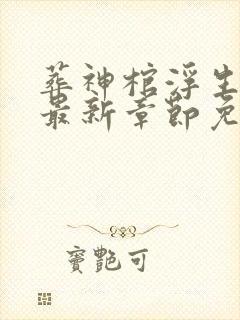 葬神棺浮生
最新章節免
竇艷可